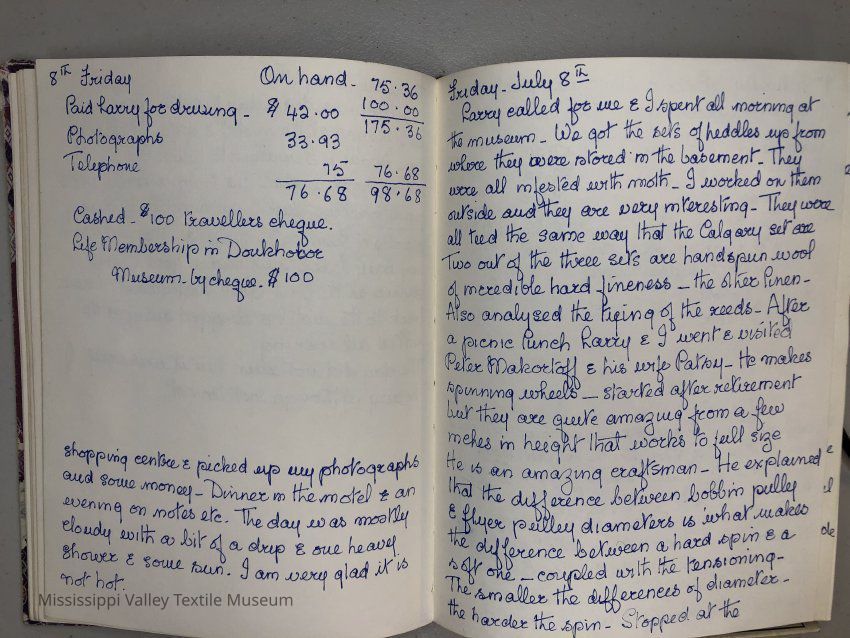 8TH Friday On hand - 75.36
Paid Larry for driving - $ 42.00 100.00
175.36
Photographs 33.93
Telephone 75 76.68
76.68 98.68
Cashed - $100 travellers cheque.
Life Membership in Doukhobor
Museum by cheque. $100
shopping centre & picked up my photographs
and some money - Dinner in the motel & an
evening on notes etc. The day was mostly
cloudy with a bit of a drip & one heavy
shower & some sun. I am very glad it is
not hot.
Mississippi Valley Textile Museum
Friday - July 8TH
Larry called for me & I spent all morning at
the museum - We got the sets of heddles up from
where they were stored in the basement - They
were all infested with moth - I worked on them
outside and they are very interesting - They were
all tied the same way that the Calgary set are
Two out of the three sets are handspun wool
of incredible hard fineness - the other linen -
Also analysed the tieing of the reeds - After
a picnic lunch Larry & I went & visited
Peter Makortoff & his wife Patsy - He makes
spinning wheels - started after retirement
but they are quite amazing from a few
inches in height that works to full size
He is an amazing craftsman - He explained
that the difference between bobbin pulley
& flyer pulley diameters is what makes
the difference between a hard spin & a
soft one - coupled with the tensioning -
The smaller the differences of diameter -
the harder the spin - Stopped at the